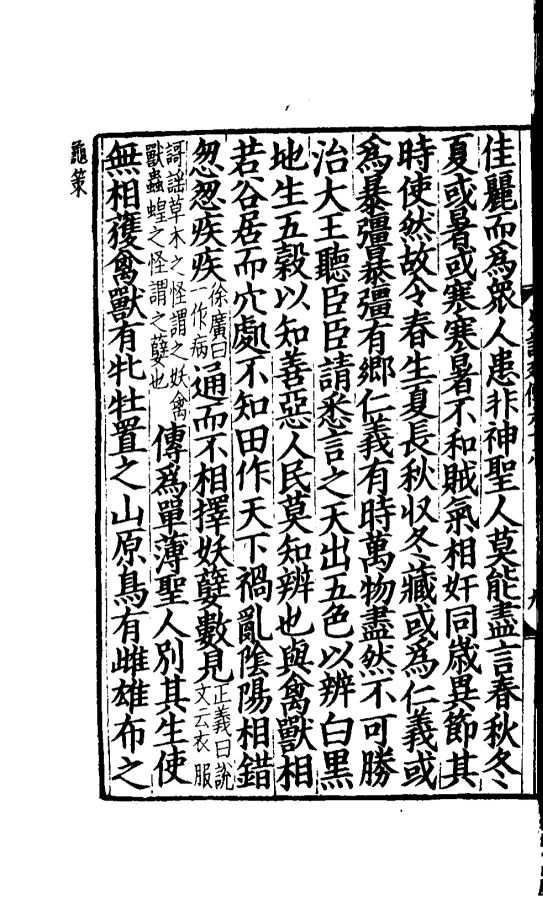 佳麗而爲衆人患非神聖人莫能盡言春秋冬
夏或暑或寒寒暑不和賊氣相奸同歲異節其
時使然故令春生夏長秋収冬藏或爲仁義或
爲暴彊暴彊有鄉仁義有時萬物盡然不可勝
治大王聽臣臣請悉言之天出五色以辨白黑
地生五穀以知善惡人民莫知辨也與禽獸相
若谷居而穴處不知田作天下禍亂陰陽相錯
怱怱疾疾徐廣曰一作病通而不相擇妖孽數見正義曰說文云衣服
謌謡草木之怪謂之妖禽獸蟲蝗之怪謂之孽也傳爲單薄聖人別其生使
無相獲禽獸有牝牡置之山原鳥有雌雄布之
龜策